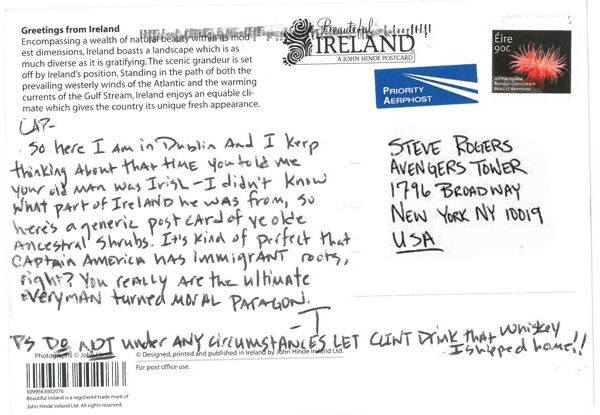 Greetings from Ireland
Encompassing a wealth of natural beauty within its mod-
est dimensions, Ireland boasts a landscape which is as
much diverse as it is gratifying. The scenic grandeur is set
off by Ireland's position. Standing in the path of both the
prevailing westerly winds of the Atlantic and the warming
currents of the Gulf Stream, Ireland enjoys an equable cli-
mate which gives the country its unique fresh appearance.
Beautiful
IRELAND
A JOHN HINDE POSTCARD
PRIORITY
AERPHOST
Éire
90c
CAP-
So here I am in Dublin And I keep
thinking About that time you told me
your old man was Irish - I didn't know
what part of IRELAND he was from, so
here's a generic post card of ye olde
Ancestral shrubs. It's kind of perfect that
CAPTAIN AMERICA HAS immigrANT roots,
right? You really are the ultimate
everymAN turned MORAL PARAGON.
-T
STEVE ROGERS
AVENGERS TOWER
1796 BROADWAY
NEW YORK NY 10019
USA
PS DO NOT under ANY circumstANCES LET CLINT Drink that whiskey
I shipped home!!
Photographs © John Hinde
© Designed, printed and published in Ireland by John Hinde Ireland Ltd.
For post office use.
5099563002076
Beautiful Ireland is a registered trade mark of
John Hinde Ireland Ltd. All rights reserved.